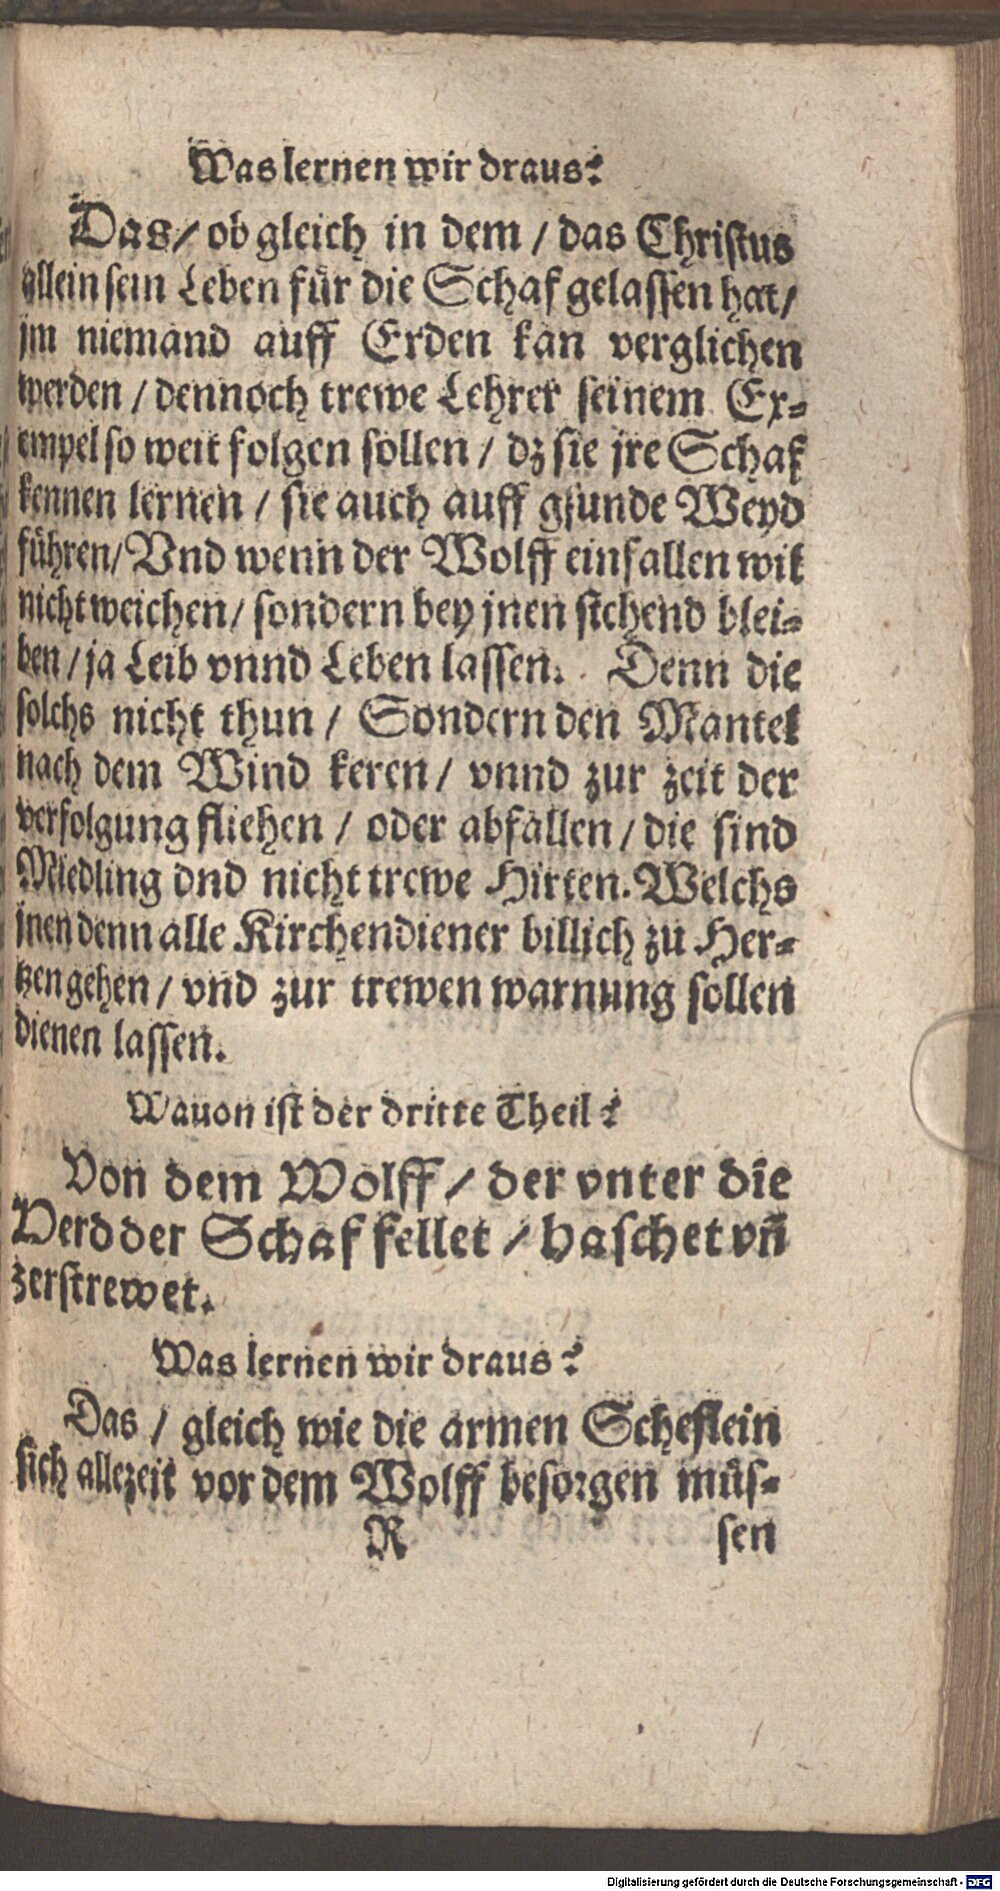 Was lernen wir draus?
Das/ ob gleich in dem / das Christus
allein sein Leben für die Schaf gelassen hat/
jm niemand auff Erden kan verglichen
werden / dennoch trewe Lehrer seinem Ex-
empel so weit folgen sollen / dz sie jre Schaf
kennen lernen / sie auch auff gsunde Weyd
führen/ Vnd wenn der Wolff einfallen wil
nicht weichen/ sondern bey jnen stehend blei-
ben / ja Leib vnnd Leben lassen. Denn die
solchs nicht thun / Sondern den Mantel
nach dem Wind keren / vnnd zur zeit der
verfolgung fliehen / oder abfallen / die sind
Miedling vnd nicht trewe Hirten. Welchs
jnen denn alle Kirchendiener billich zu Her-
tzen gehen / vnd zur trewen warnung sollen
dienen lassen.
Wauon ist der dritte Theil?
Von dem Wolff / der vnter die
Herd der Schaf fellet / haschet vñ
zerstrewet.
Was lernen wir draus?
Das / gleich wie die armen Scheflein
sich allezeit vor dem Wolff besorgen müs-
R sen
Digitalisierung gefördert durch die Deutsche Forschungsgemeinschaft - DFG